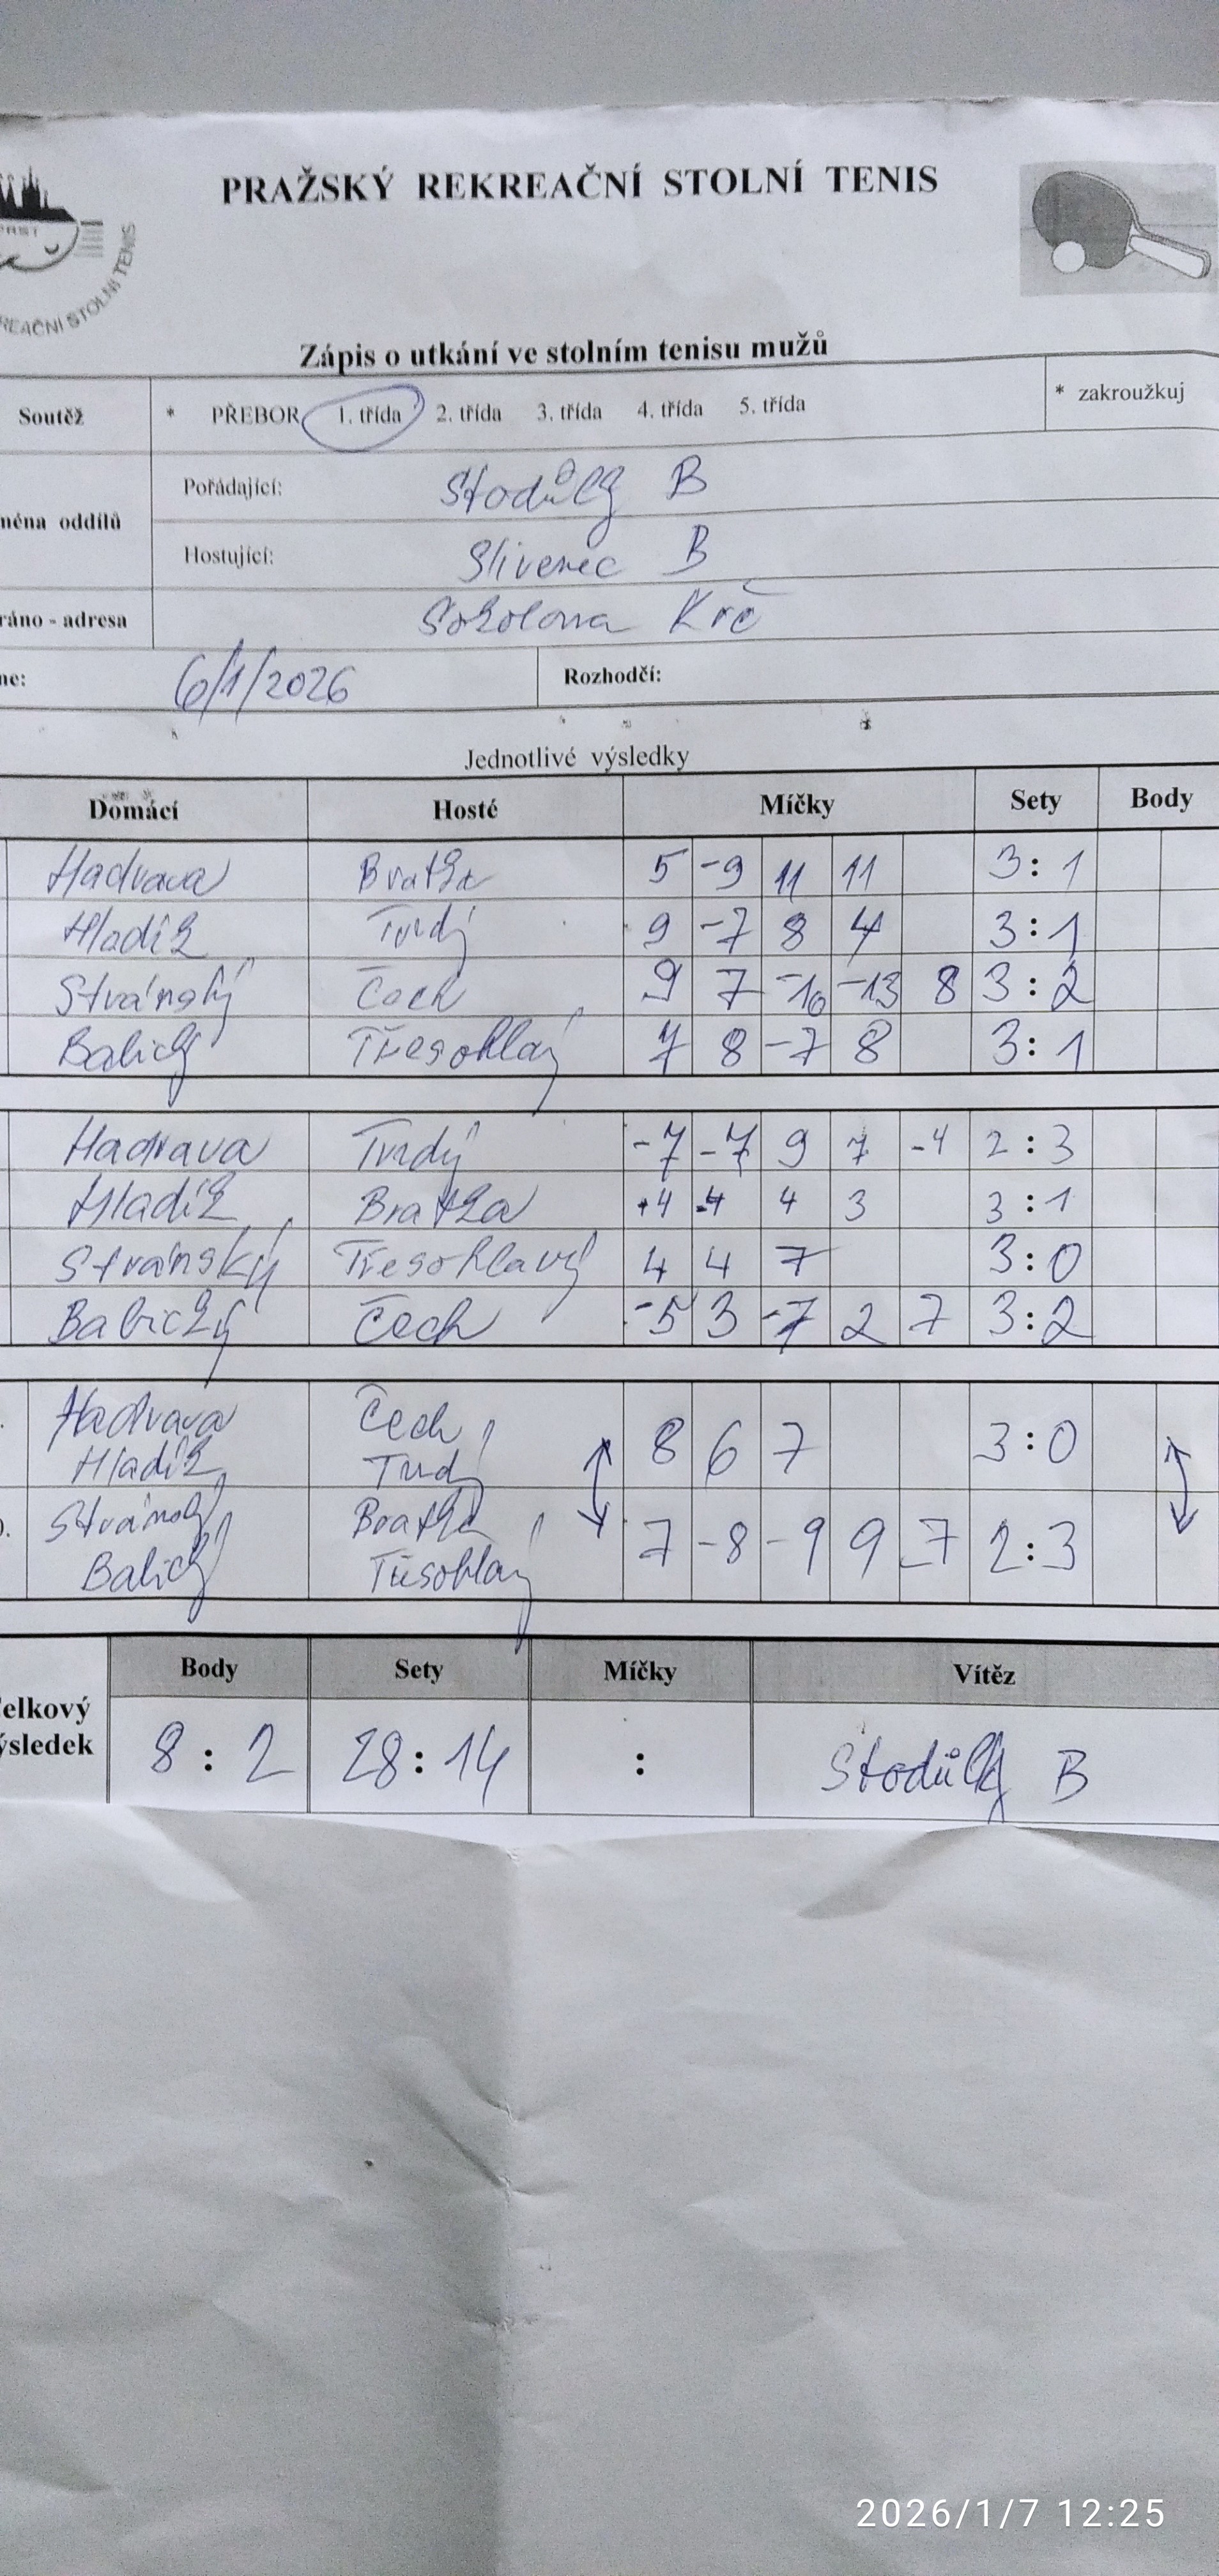 PRAŽSKÝ REKREAČNÍ STOLNÍ TENIS
REAČNÍ STOLNÍ TENIS
Zápis o utkání ve stolním tenisu mužů
Soutěž * PŘEBOR 1. třída 2. třída 3. třída 4. třída 5. třída * zakroužkuj
Pořádající: Stodůlky B
ména oddílů
Hostující: Slivenec B
ráno - adresa Sokolovna Krč
ne: 6/1/2026 Rozhodčí:
Jednotlivé výsledky
Domácí Hosté Míčky Sety Body
Hadrava Bratka 5 -9 11 11 3:1
Hladík Tvrdý 9 -7 8 4 3:1
Stránský Čech 9 7 -10 -13 8 3:2
Babický Třesohlavý 7 8 -7 8 3:1
Hadrava Tvrdý -7 -7 9 7 -4 2:3
Hladík Bratka 4 -4 4 3 3:1
Stránský Třesohlavý 4 4 7 3:0
Babický Čech -5 3 -7 2 7 3:2
Hadrava Čech
Hladík Tvrdý 8 6 7 3:0
Stránský Bratka
Babický Třesohlavý 7 -8 -9 9 -7 2:3
Body Sety Míčky Vítěz
elkový
ýsledek 8:2 28:14 : Stodůlky B
2026/1/7 12:25